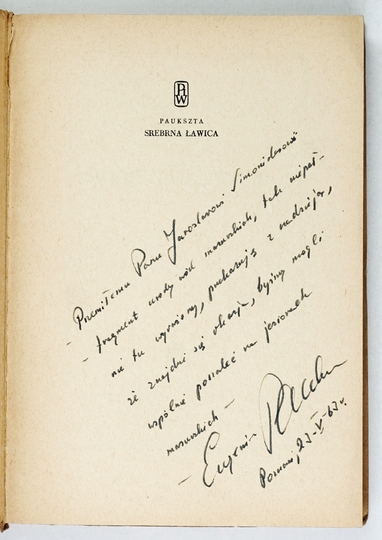 PAUKSZTA
SREBRNA ŁAWICA
Przemiłemu Panu Jarosławowi Simonidesowi
- fragment urody wód mazurskich, tak niepeł-
nie tu wyrażony, przekazuję z nadzieją,
że znajdzie się okazja, byśmy mogli
wspólnie połazić na jeziorach
mazurskich -
- Eugeniusz Paukszta
Poznań, 23-V-63 r.